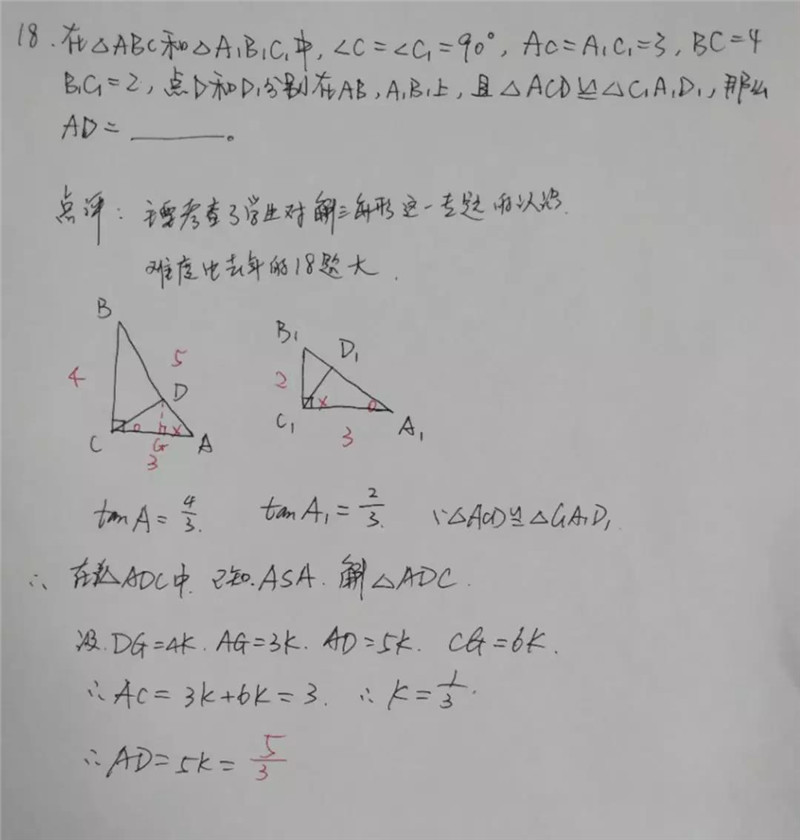 18. 在△ABC和△A₁B₁C₁中, ∠C=∠C₁=90°, AC=A₁C₁=3, BC=4
B₁C₁=2, 点D和D₁分别在AB, A₁B₁上, 且△ACD≌△C₁A₁D₁, 那么
AD=______。
点评: 主要考查了学生对解三角形这一专题的认识.
难度比去年的18题大.
B
5
4
D
C
G
A
3
B₁
D₁
2
C₁
A₁
3
tanA=4/3. tanA₁=2/3. ∵△ACD≌△C₁A₁D₁
∴ 在△ADC中. 已知.ASA. 解△ADC.
设.DG=4k. AG=3k. AD=5k. CG=6k.
∴AC=3k+6k=3. ∴k=1/3.
∴AD=5k=5/3